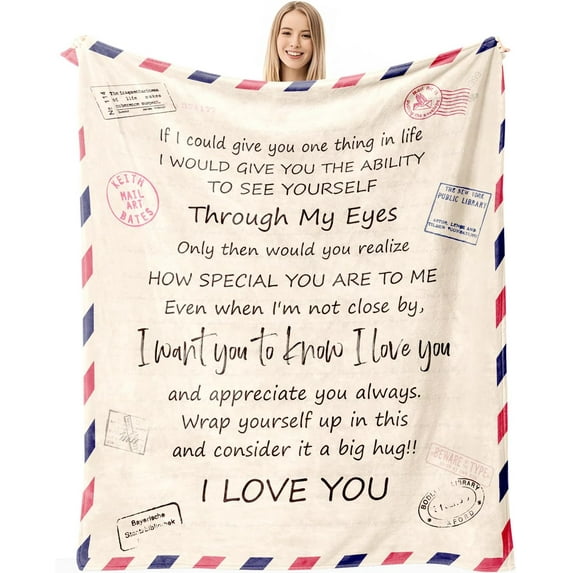 If I could give you one thing in life
I WOULD GIVE YOU THE ABILITY
TO SEE YOURSELF
Through My Eyes
Only then would you realize
HOW SPECIAL YOU ARE TO ME
Even when I'm not close by,
I want you to know I love you
and appreciate you always.
Wrap yourself up in this
and consider it a big hug!!
I LOVE YOU
KEITH
MAIL
ART
BATES
THE NEW YORK
PUBLIC LIBRARY
ASTOR, LENOX AND
BEWARE
Bayerische
Staatsbibliothek